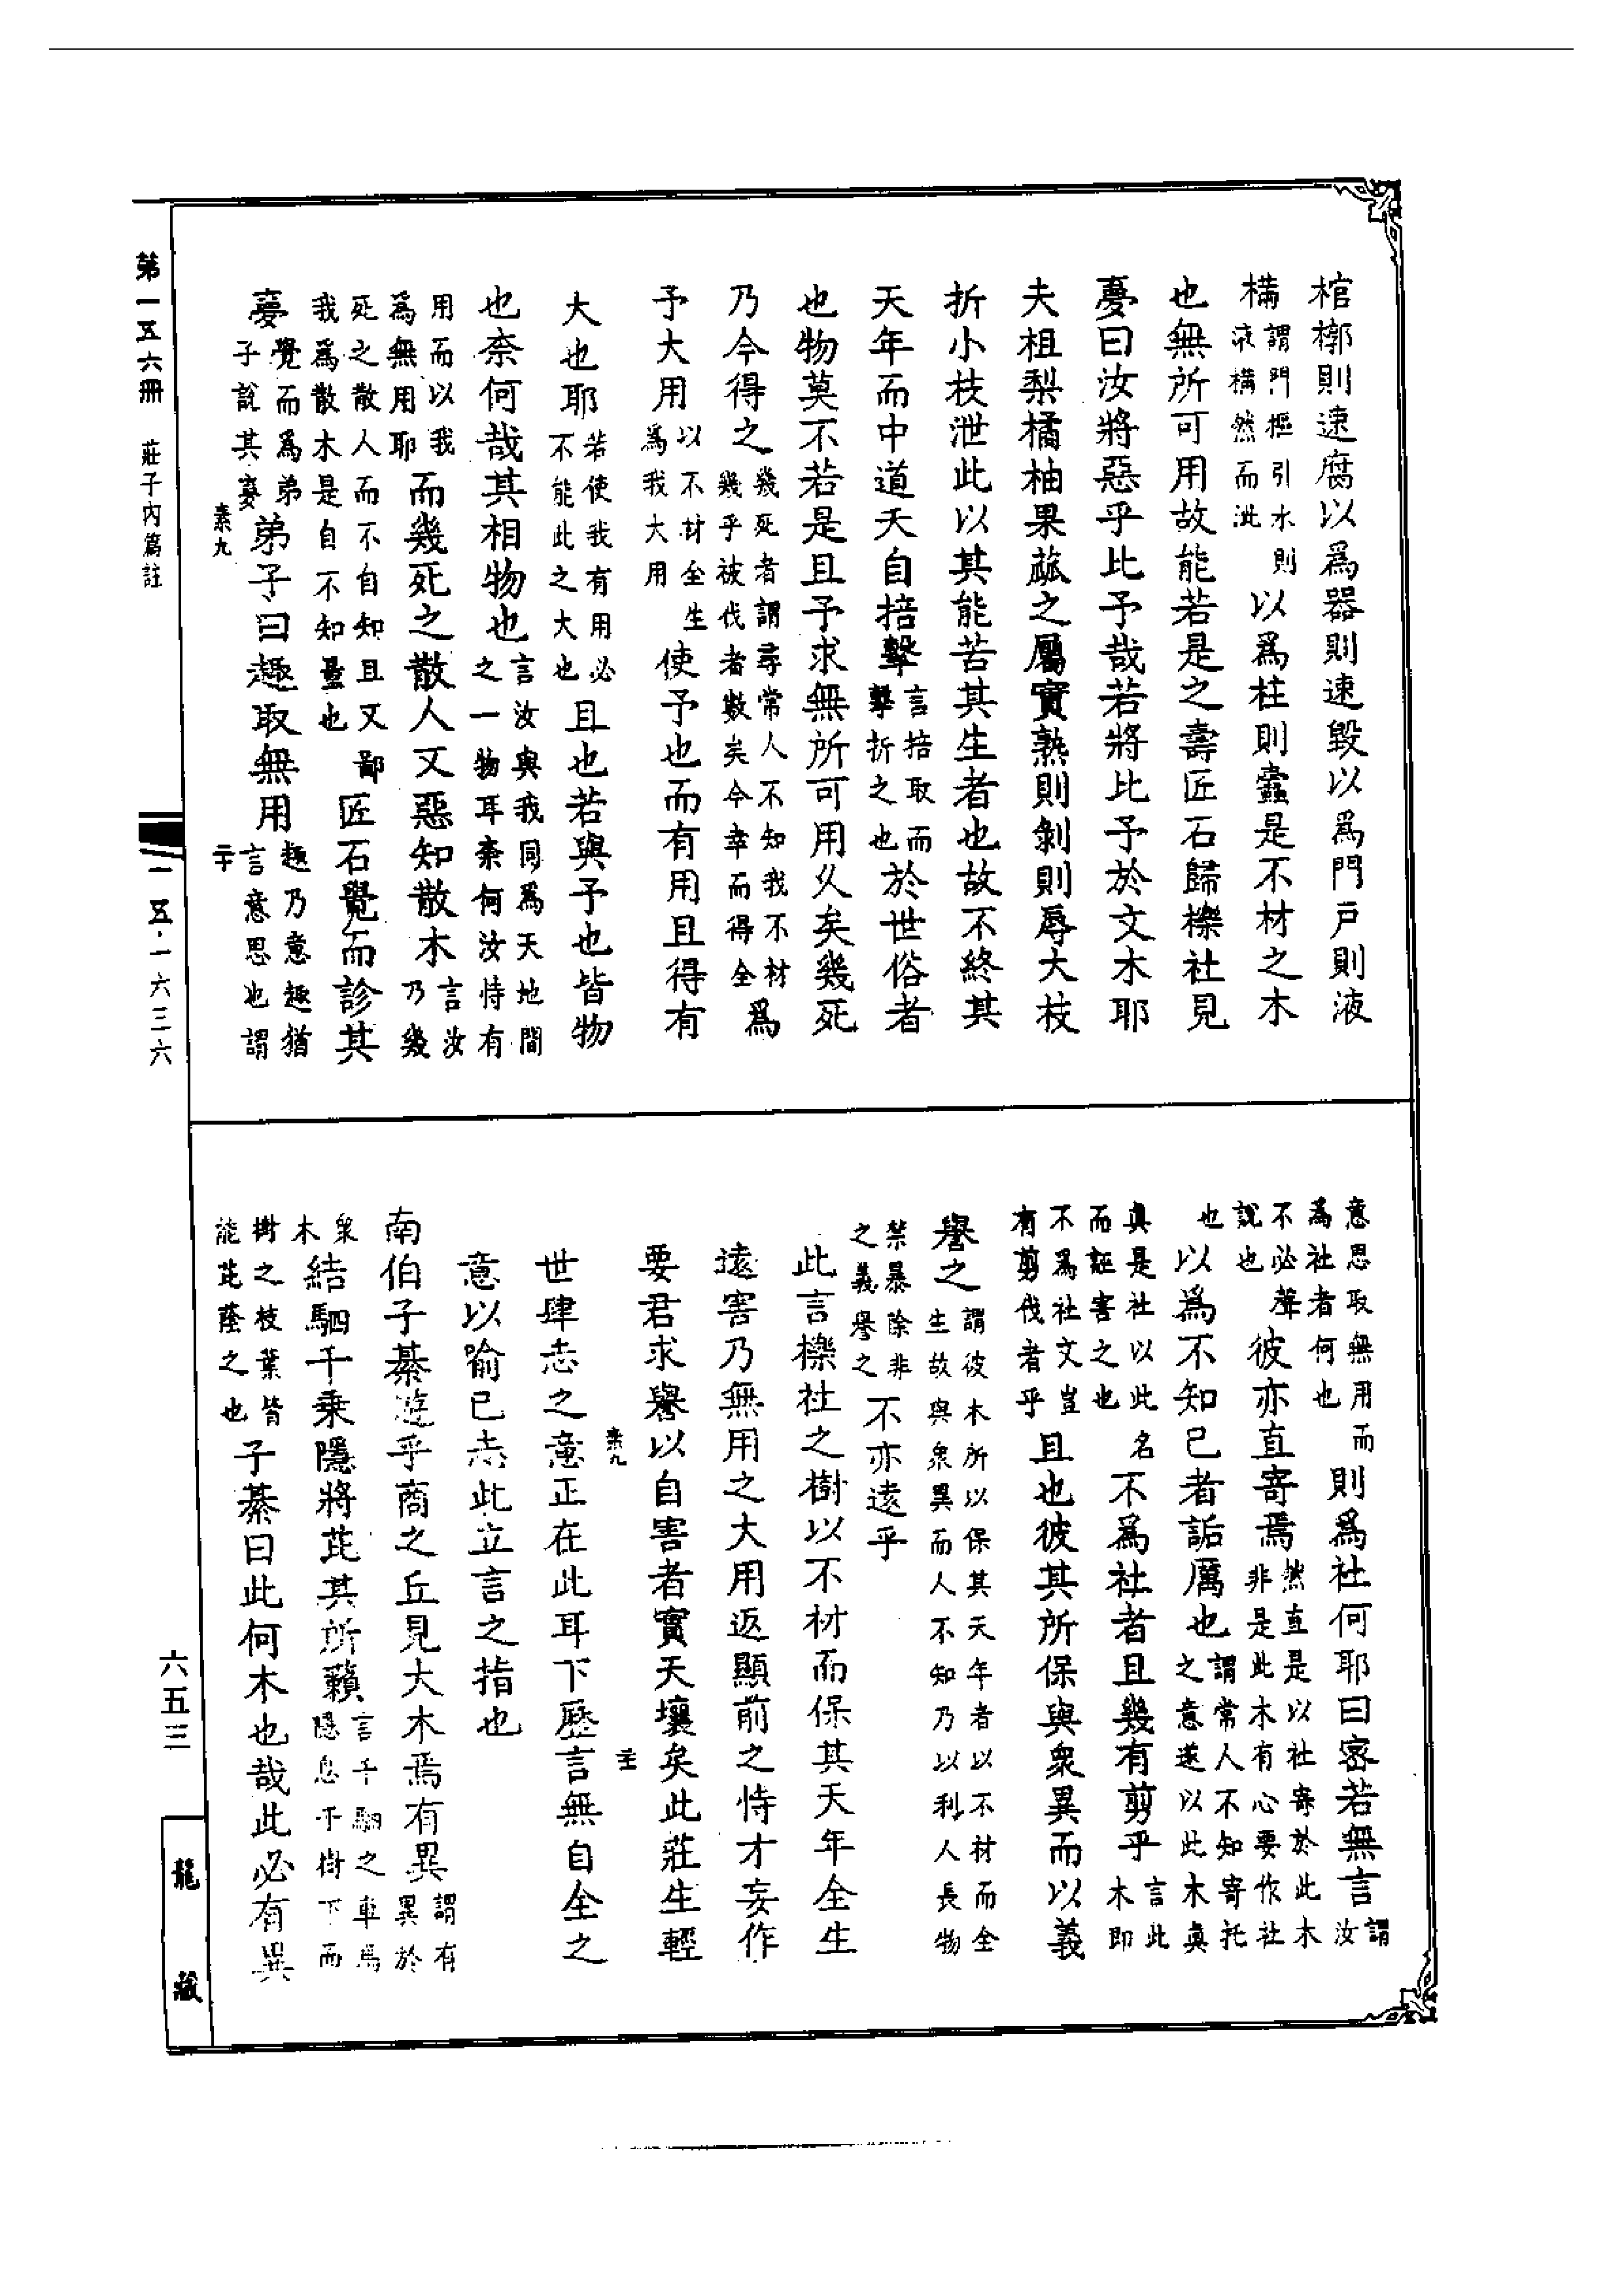 棺槨則速腐以為器則速毀以為門戶則液
構謂門樞引水則液構然而泚以為柱則蠹是不材之木
也無所可用故能若是之壽匠石歸櫟社見
夢曰汝將惡乎比予哉若將比予於文木耶
夫柤梨橘柚果蓏之屬實熟則剝則辱大枝
折小枝泄此以其能苦其生者也故不終其
天年而中道夭自掊擊言掊取而擊折之也於世俗者
也物莫不若是且予求無所可用久矣幾死
乃今得之幾死者謂尋常人不知我不材幾乎被伐者數矣今幸而得全為
予大用以不材全生為我大用使予也而有用且得有
大也耶若使我有用必不能此之大也且也若與予也皆物
也柰何哉其相物也言汝與我同為天地間之一物耳柰何汝恃有
用而以我為無用耶而幾死之散人又惡知散木言汝乃幾
死之散人而不自知且又鄙我為散木是自不知量也匠石覺而診其
夢覺而為弟子說其夢弟子曰趣取無用趣乃意趣猶言意思也謂
素九
二十
意思取無用而為社者何也則為社何耶曰密若無言謂汝
不必聲說也彼亦直寄焉然直是以社寄於此木非是此木有心要作社
也以為不知己者詬厲也謂常人不知寄托之意遂以此木真
真是社以此名而誣害之也不為社者且幾有剪乎言此木即
不為社文豈有剪伐者乎且也彼其所保與衆異而以義
譽之謂彼木所以保其天年者以不材而全生故與衆異而人不知乃以利人長物
禁暴除非之義譽之不亦遠乎
此言櫟社之樹以不材而保其天年全生
遠害乃無用之大用返顯前之恃才妄作
要君求譽以自害者實天壤矣此莊生輕
素九
主
世肆志之意正在此耳下歷言無自全之
意以喻己志此立言之指也
南伯子綦遊乎商之丘見大木焉有異謂有異於
衆木結駟千乘隱將芘其所藾言千駟之車馬隱息于樹下而
樹之枝葉皆能芘蔭之也子綦曰此何木也哉此必有異
第一五六冊 莊子內篇註
一五·一六三六
六五三
龍藏